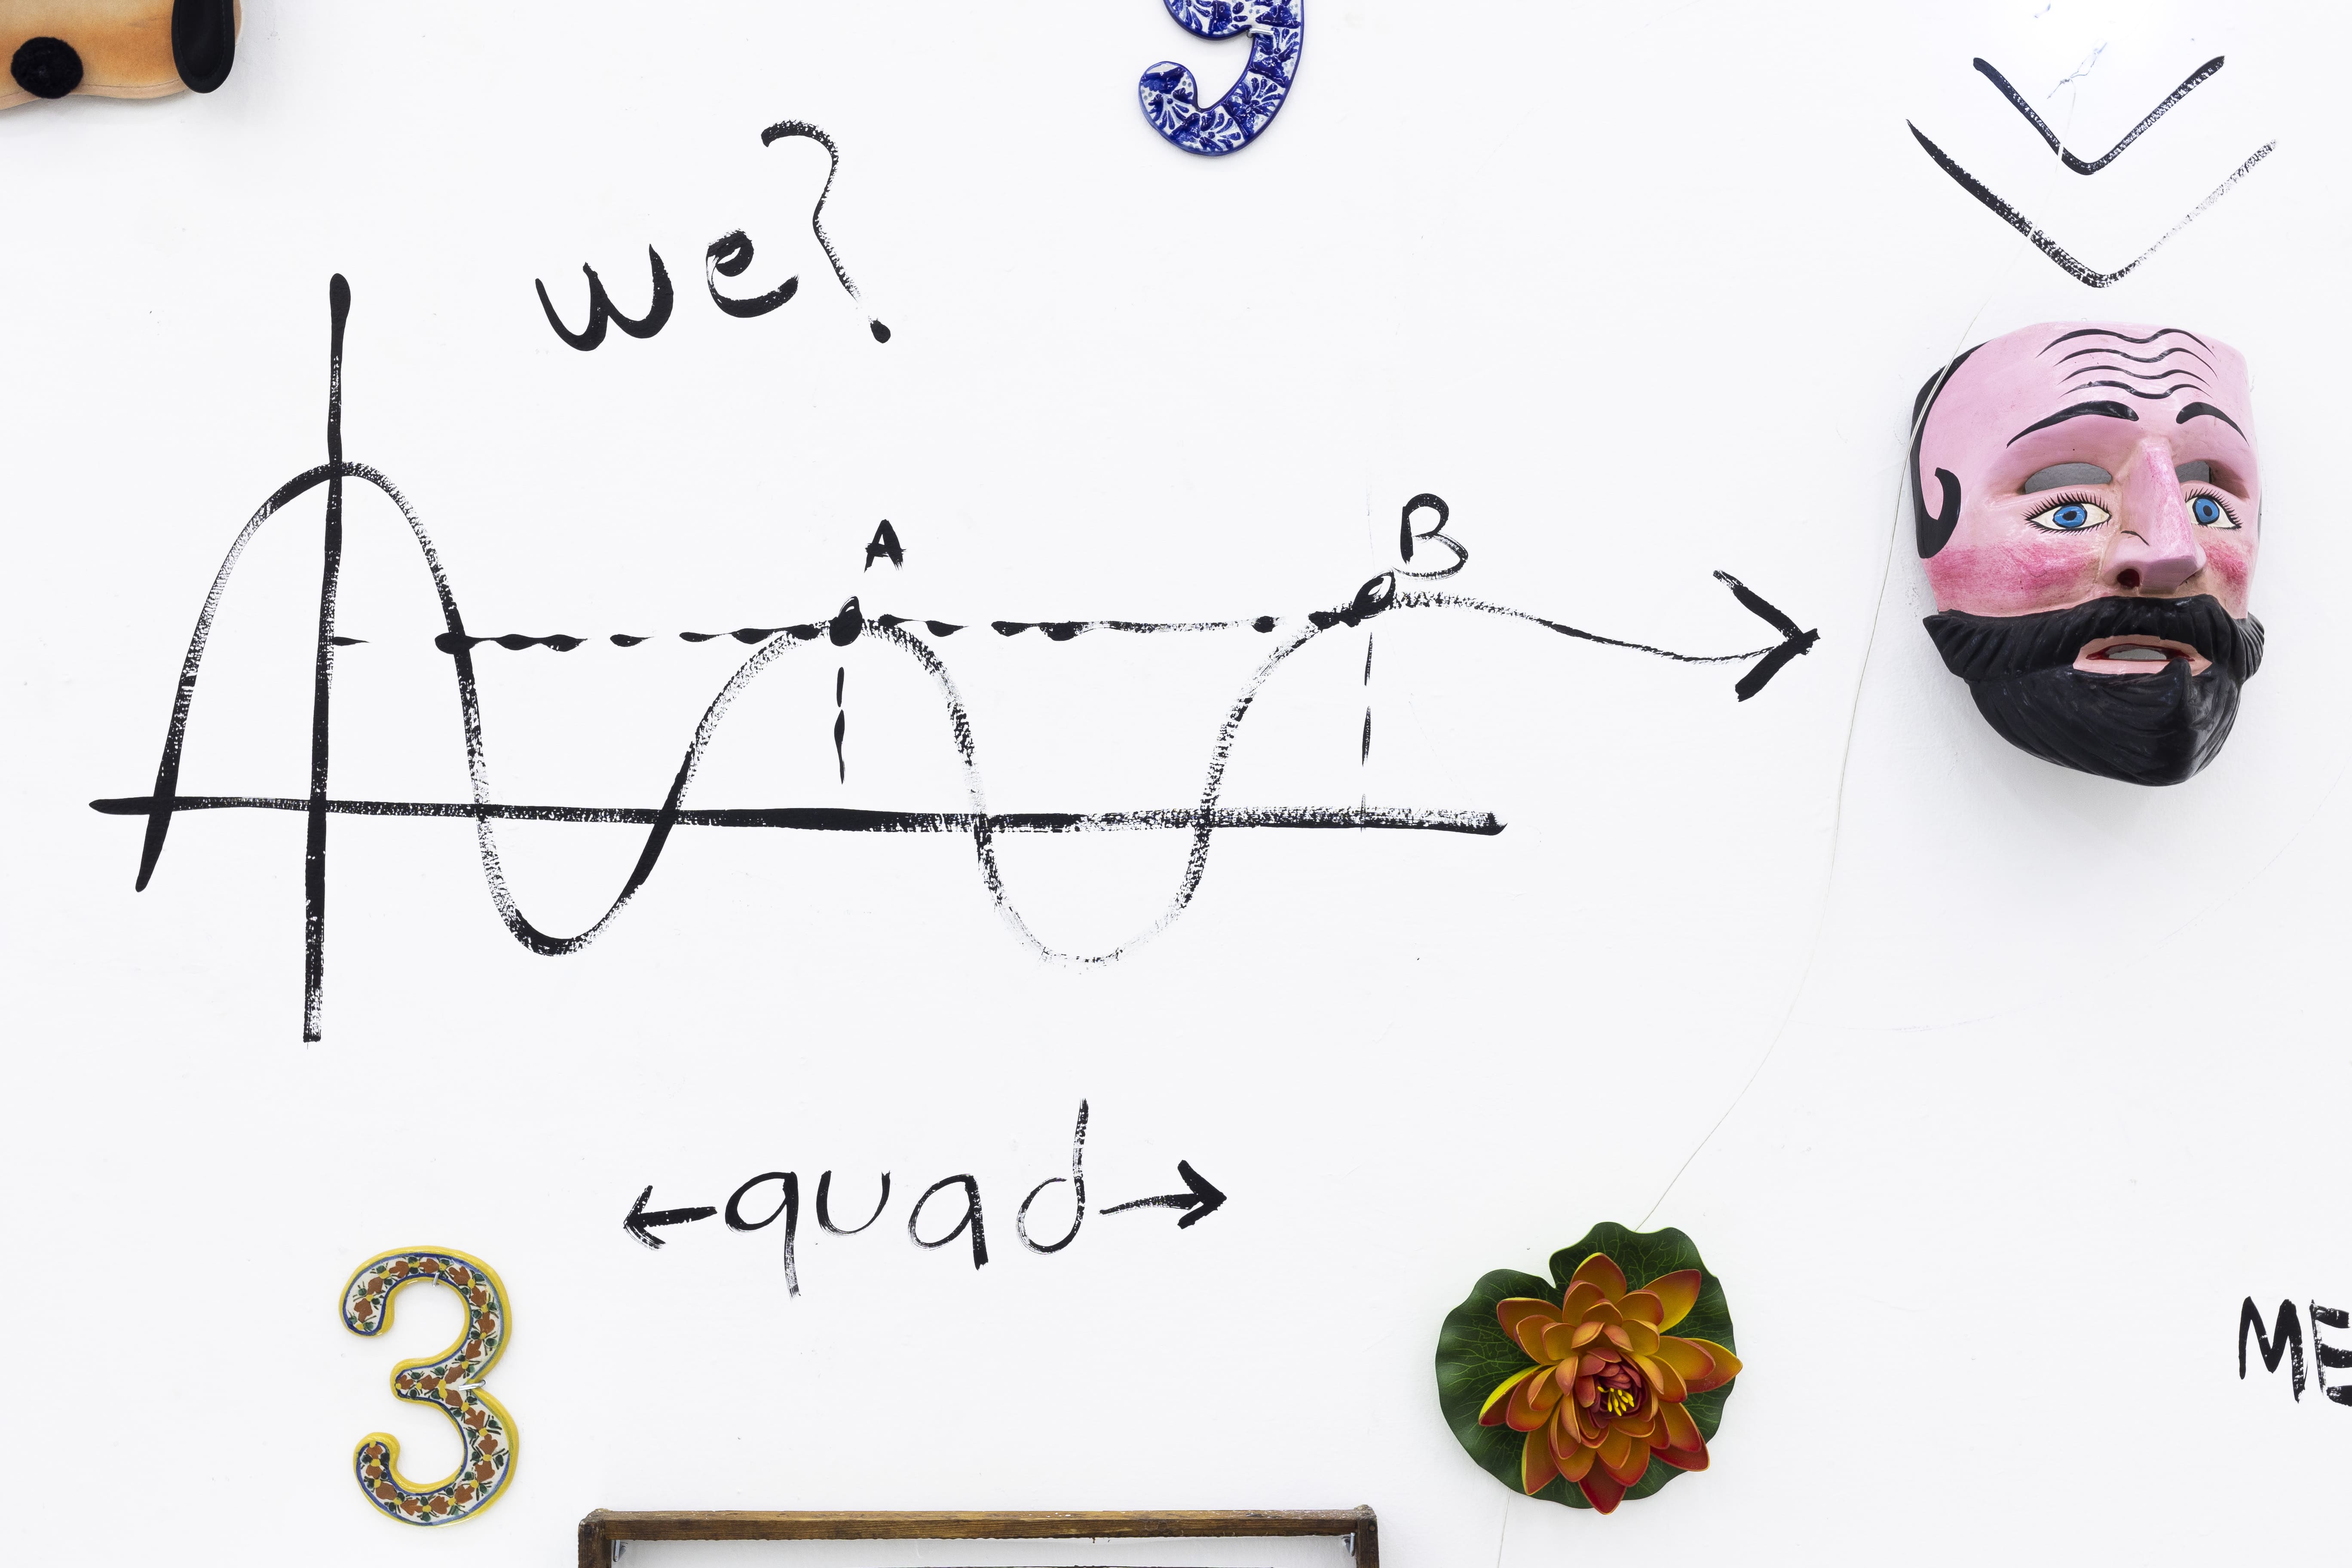 we?
A
B
← quad →
3
ME